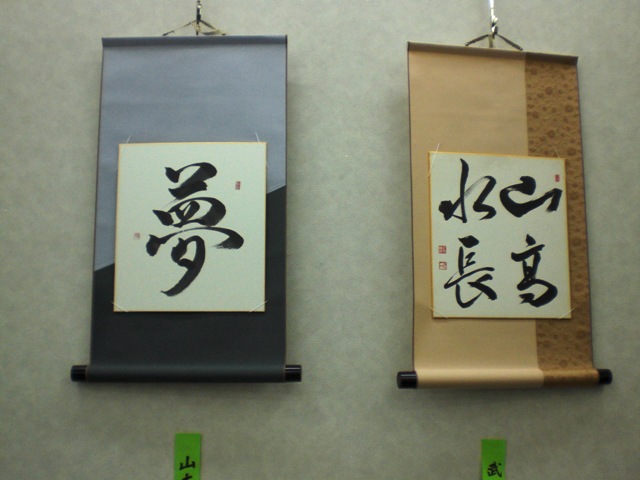 夢
山高
水長
山本
武